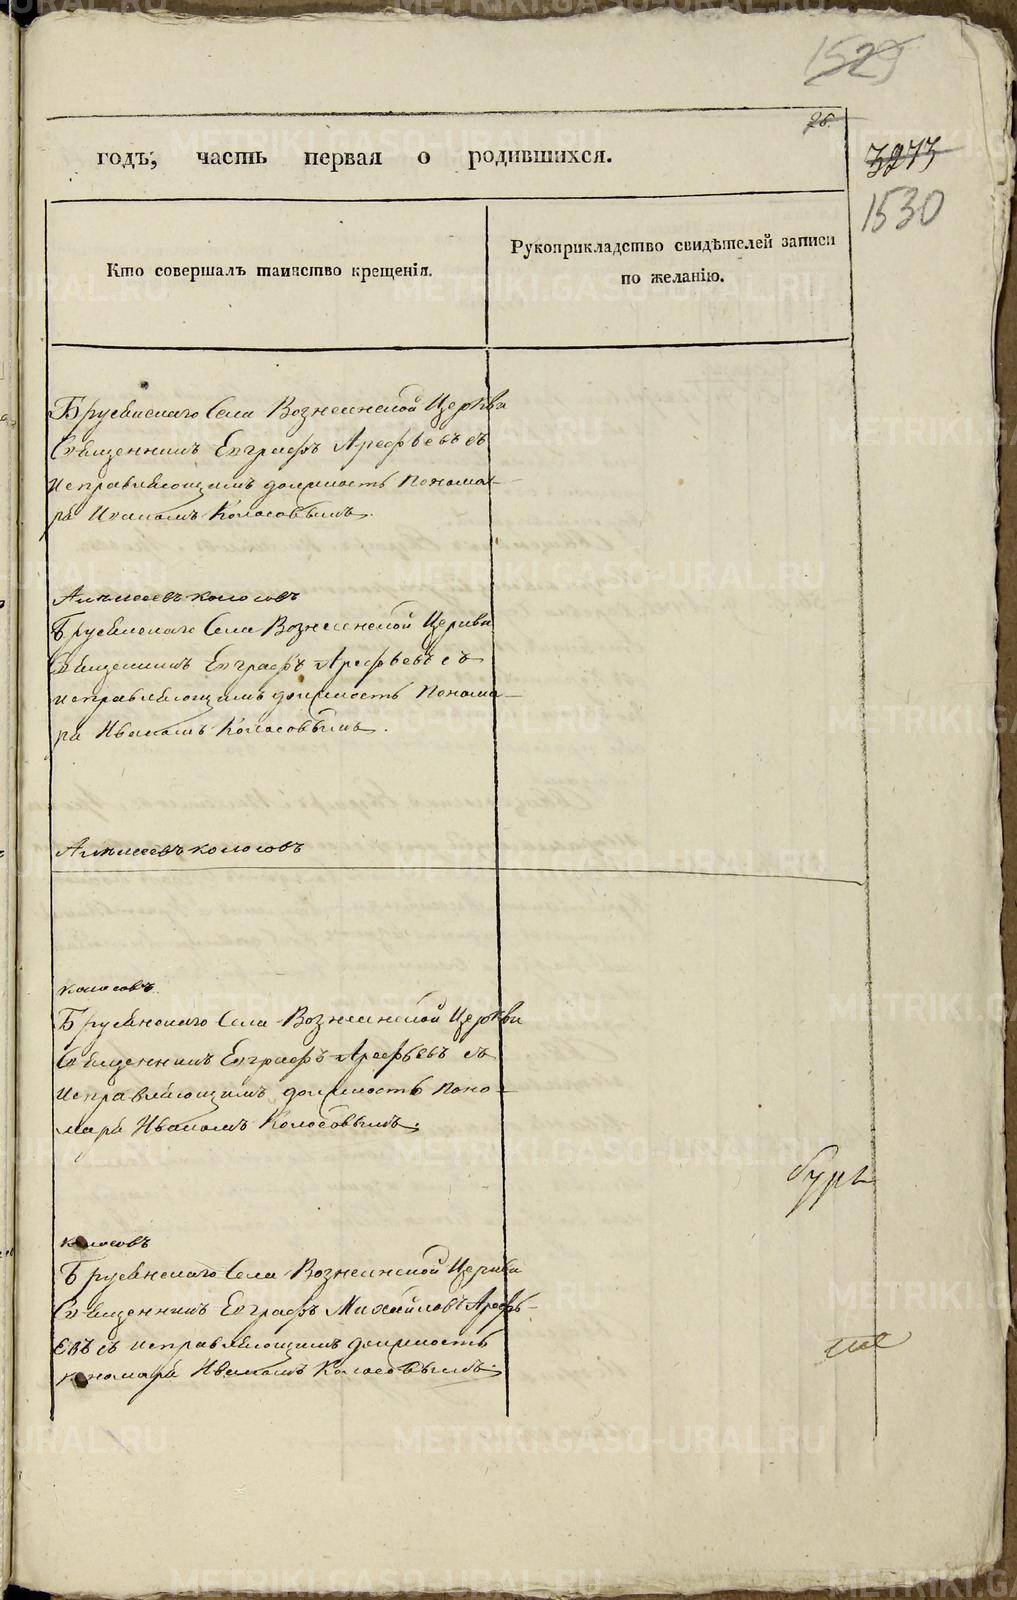 1529
26.
годъ, часть первая о родившихся.
3273
1530
Кто совершалъ таинство крещенія.
Рукоприкладство свидѣтелей записи
по желанію.
Брусянскаго Села Вознесенской Церкви
Священникъ Евграфъ Арефьевъ съ
исправляющимъ должность понома-
ря Иваномъ Колосовымъ.
Алексеевъ колосовъ
Брусянскаго Села Вознесенской Церкви
Священникъ Евграфъ Арефьевъ съ
исправляющимъ должность понома-
ря Иваномъ Колосовымъ.
Алексеевъ колосовъ
колосовъ
Брусянскаго Села Вознесенской Церкви
Священникъ Евграфъ Арефьевъ съ
исправляющимъ должность поно-
маря Иваномъ Колосовымъ.
колосовъ
Брусянскаго Села Вознесенской Церкви
Священникъ Евграфъ Михайловъ Арефь-
евъ съ исправляющимъ должность
пономаря Иваномъ Колосовымъ.
METRIKI.GASO-URAL.RU